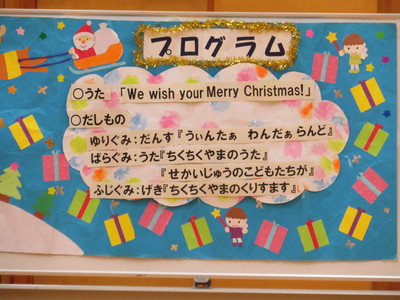 プログラム
○うた 「We wish your Merry Christmas!」
○だしもの
ゆりぐみ：だんす『うぃんたぁ わんだぁらんど』
ばらぐみ：うた『ちくちくやまのうた』
『せかいじゅうのこどもたちが』
ふじぐみ：げき『ちくちくやまのくりすます』